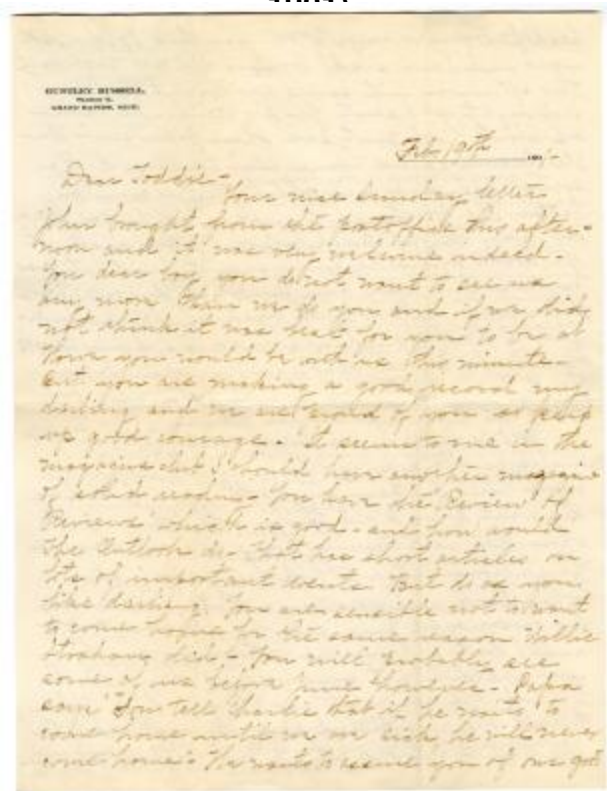 HUNTLEY RUSSELL,
GRAND RAPIDS, MICH.
Feb 19th 190
Dear Toddie-
Your nice Sunday letter
brought from the Postoffice this after-
noon and it was very welcome indeed.
You dear boy, you do not want to see us
any more than we do you and if we did
not think it was best for you to be at
you would be with us this minute-
But you are making a good record my
darling and we are proud of you so keep
up good courage. It seems to me in the
magazine I should have another magazine
of solid reading. You have the Review of
Reviews which is good. and how would
the Outlook do. That has short articles on
lots of important events. But do as you
like darling. You are sensible not to want
to come home for the same reason Willie
did. You will probably see
some of us before June however. Papa
says "You tell Charlie that if he waits to
come home until we are sick he will never
come home" He wants to assure you of our good